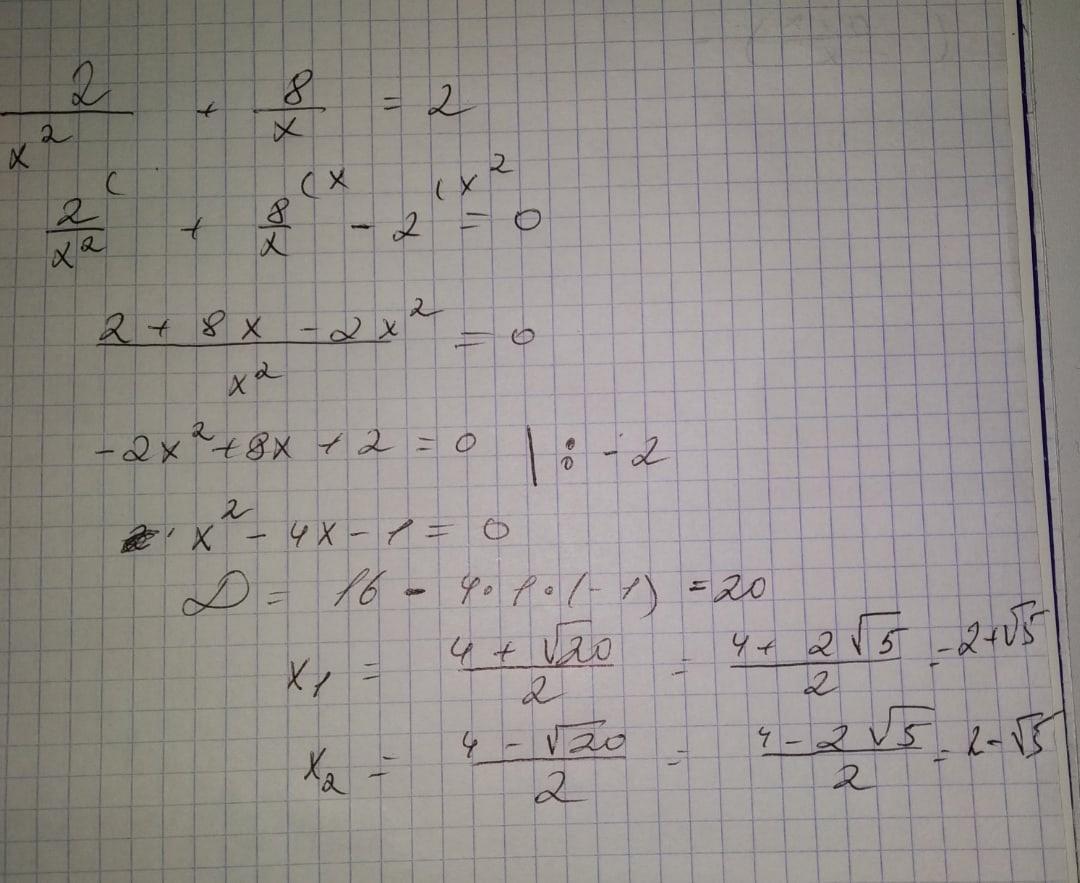 2/x² + 8/x = 2
2/x² ( + 8/x (x - 2 (x² = 0
(2 + 8x - 2x²)/x² = 0
-2x² + 8x + 2 = 0 | : -2
x² - 4x - 1 = 0
D = 16 - 4·1·(-1) = 20
x₁ = (4 + √20)/2 = (4 + 2√5)/2 = 2+√5
x₂ = (4 - √20)/2 = (4 - 2√5)/2 = 2-√5